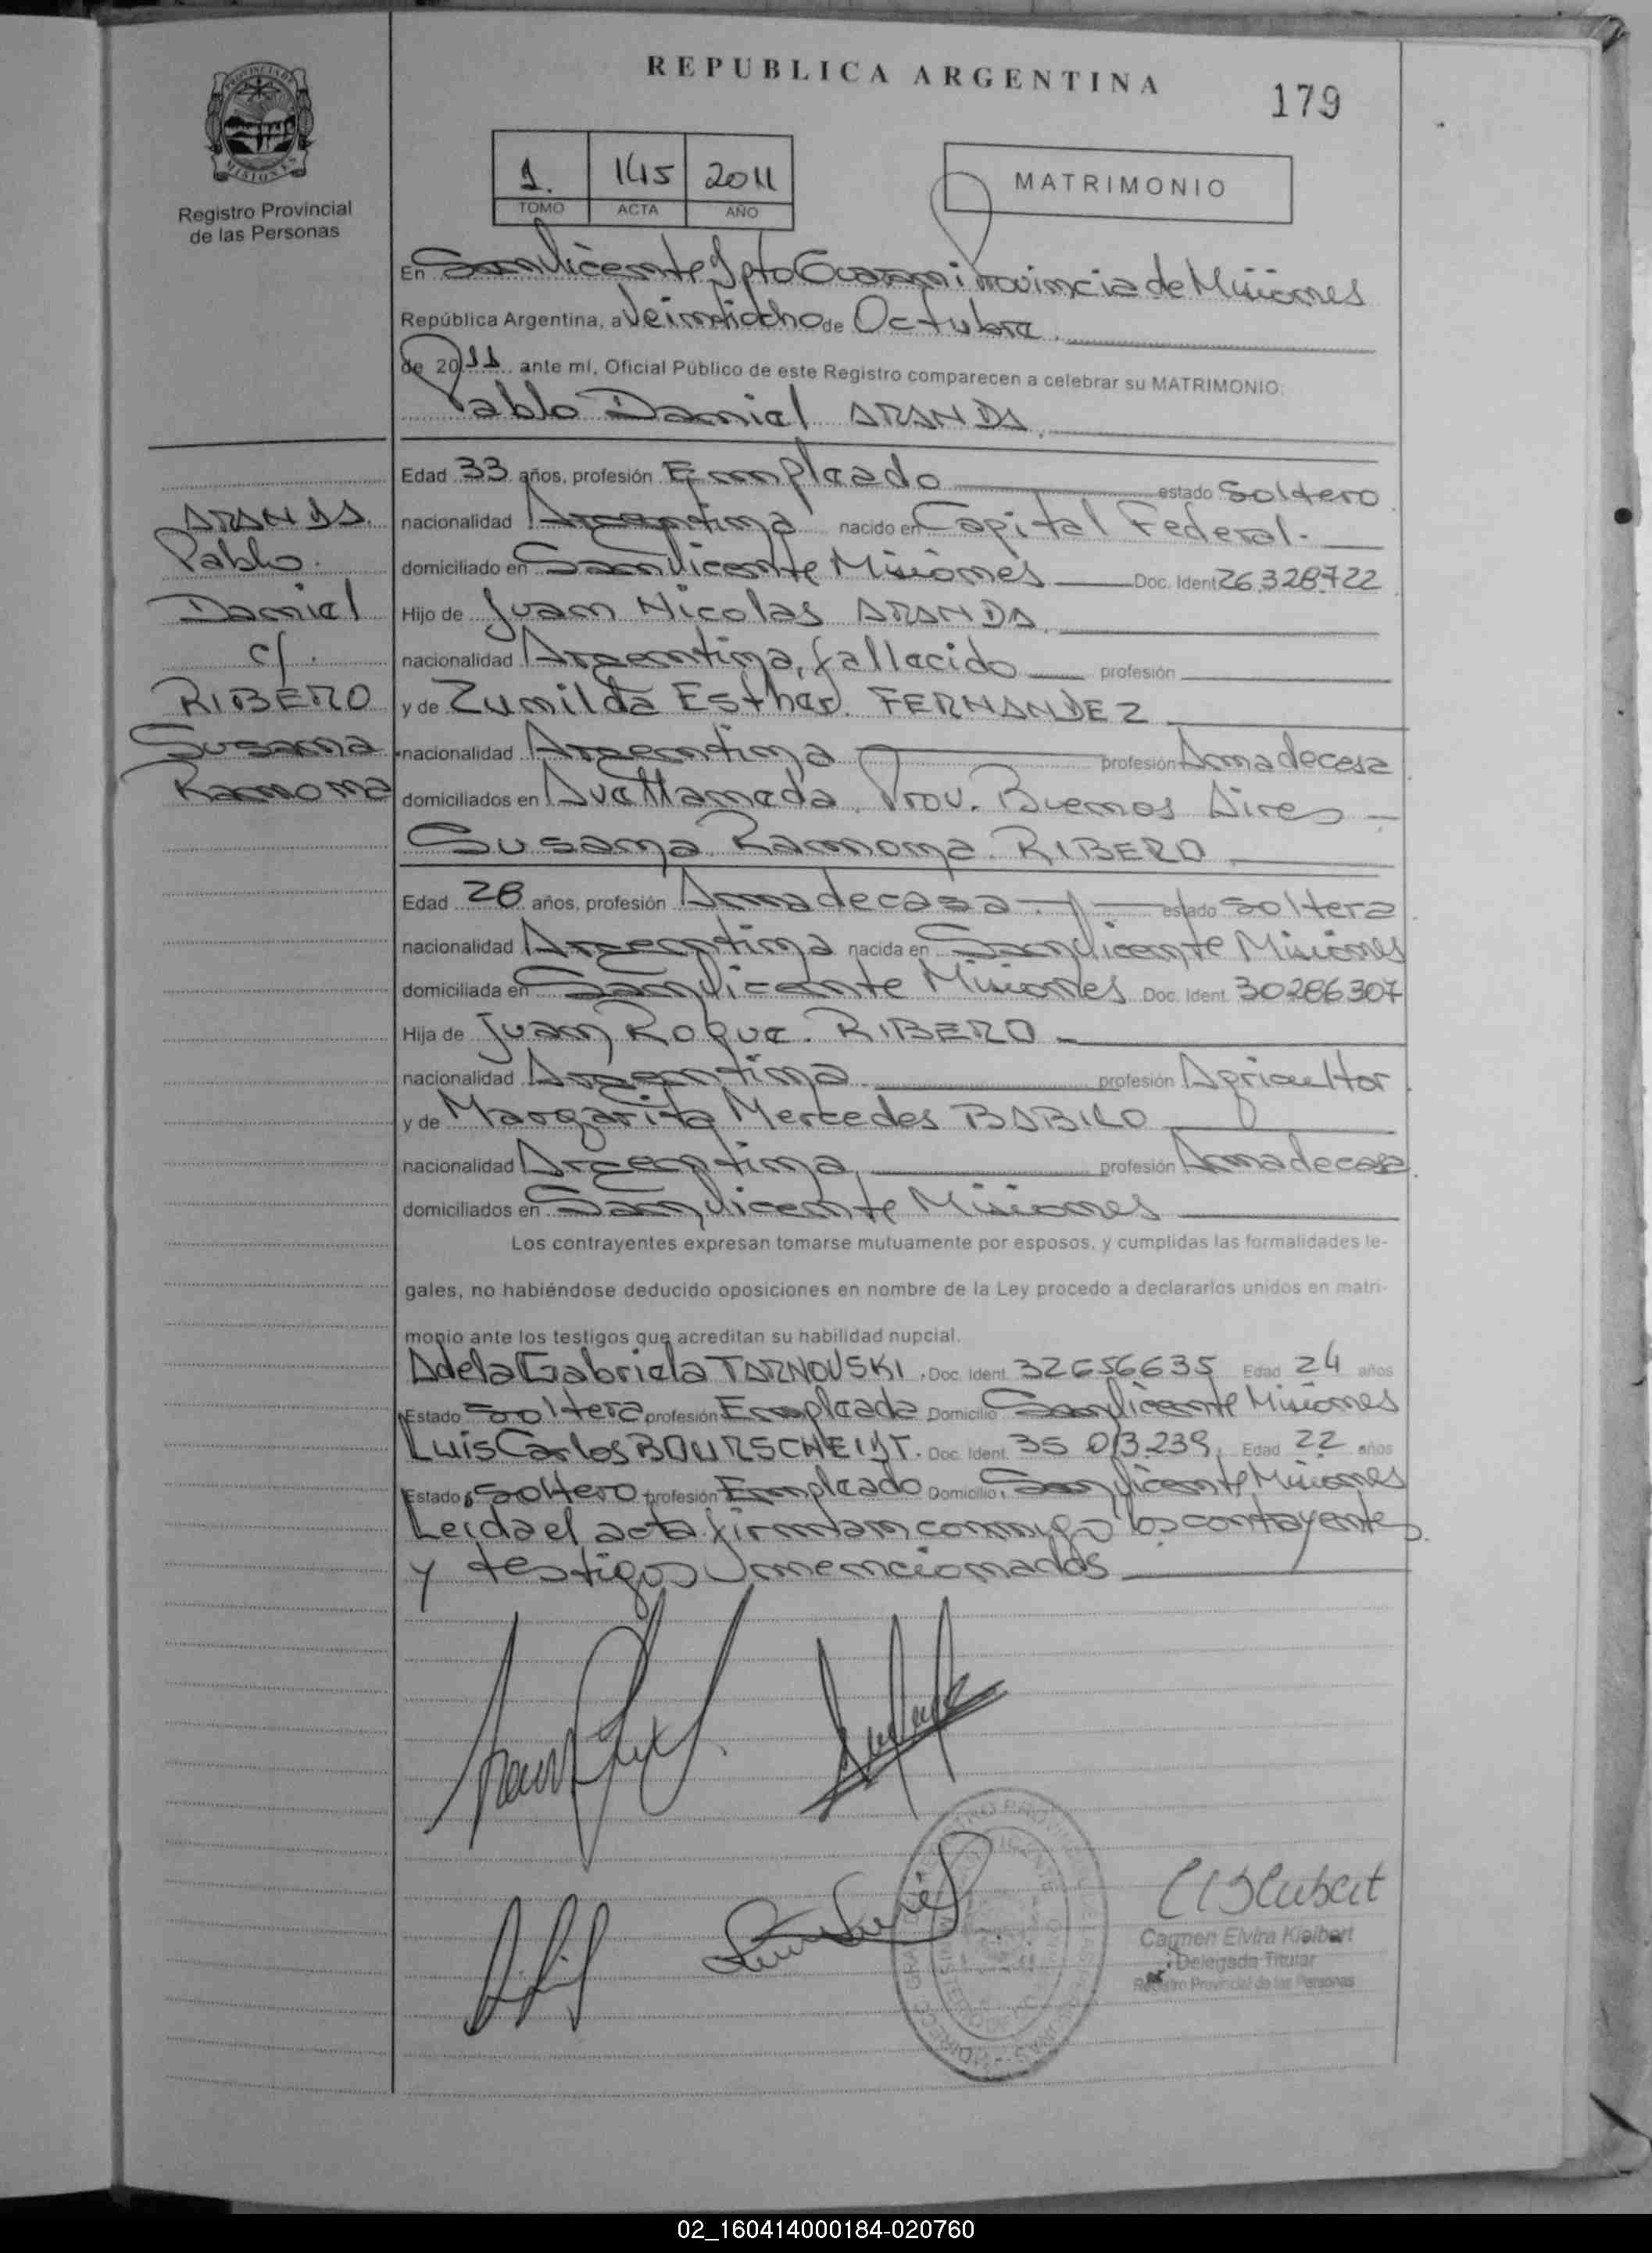 REPUBLICA ARGENTINA
179
PROVINCIA DE
MISIONES
Registro Provincial
de las Personas
1. 145 2011
TOMO ACTA AÑO
MATRIMONIO
En San Vicente Dpto Guarani Provincia de Misiones
República Argentina, a Veintiocho de Octubre
de 2011 ante mí, Oficial Público de este Registro comparecen a celebrar su MATRIMONIO:
Pablo Daniel ARANDA
Edad 33 años, profesión Empleado estado Soltero
nacionalidad Argentina nacido en Capital Federal.
domiciliado en San Vicente Misiones Doc. Ident 26.328.722
Hijo de Juan Nicolas ARANDA
nacionalidad Argentina, fallecido profesión
y de Zumilda Esther FERNANDEZ
nacionalidad Argentina profesión Ama de casa
domiciliados en Avellaneda Prov. Buenos Aires
Susana Ramona RIBERO
Edad 28 años, profesión Ama de casa estado Soltera
nacionalidad Argentina nacida en San Vicente Misiones
domiciliada en San Vicente Misiones Doc. Ident. 30286307
Hija de Juan Roque RIBERO
nacionalidad Argentina profesión Agricultor
y de Margarita Mercedes BABILO
nacionalidad Argentina profesión Ama de casa
domiciliados en San Vicente Misiones
Los contrayentes expresan tomarse mutuamente por esposos, y cumplidas las formalidades le-
gales, no habiéndose deducido oposiciones en nombre de la Ley procedo a declararlos unidos en matri-
monio ante los testigos que acreditan su habilidad nupcial.
Adela Gabriela TARNOVSKI. Doc. Ident. 32656635 Edad 24 años
Estado Soltera profesión Empleada Domicilio San Vicente Misiones
Luis Carlos BOURSCHEIDT. Doc. Ident. 35 013.239 Edad 22 años
Estado Soltero profesión Empleado Domicilio San Vicente Misiones
Leida el acta firman conmigo los contrayentes
y testigos mencionados
ARANDA
Pablo
Daniel
c/.
RIBERO
Susana
Ramona
Carmen Elvira Kleibert
Delegada Titular
Registro Provincial de las Personas
02_160414000184-020760